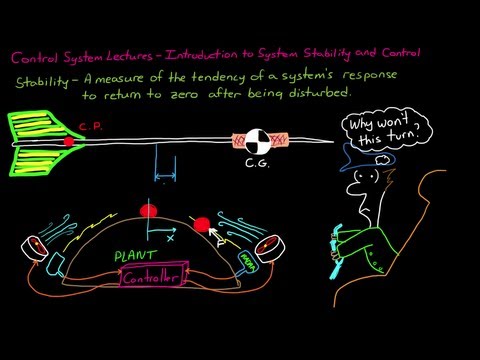 Control System Lectures - Intruduction to System Stability and Control
Stability - A measure of the tendency of a system's response
to return to zero after being disturbed.
C.P.
C.G.
Why won't
this turn?
x
PLANT
Controller